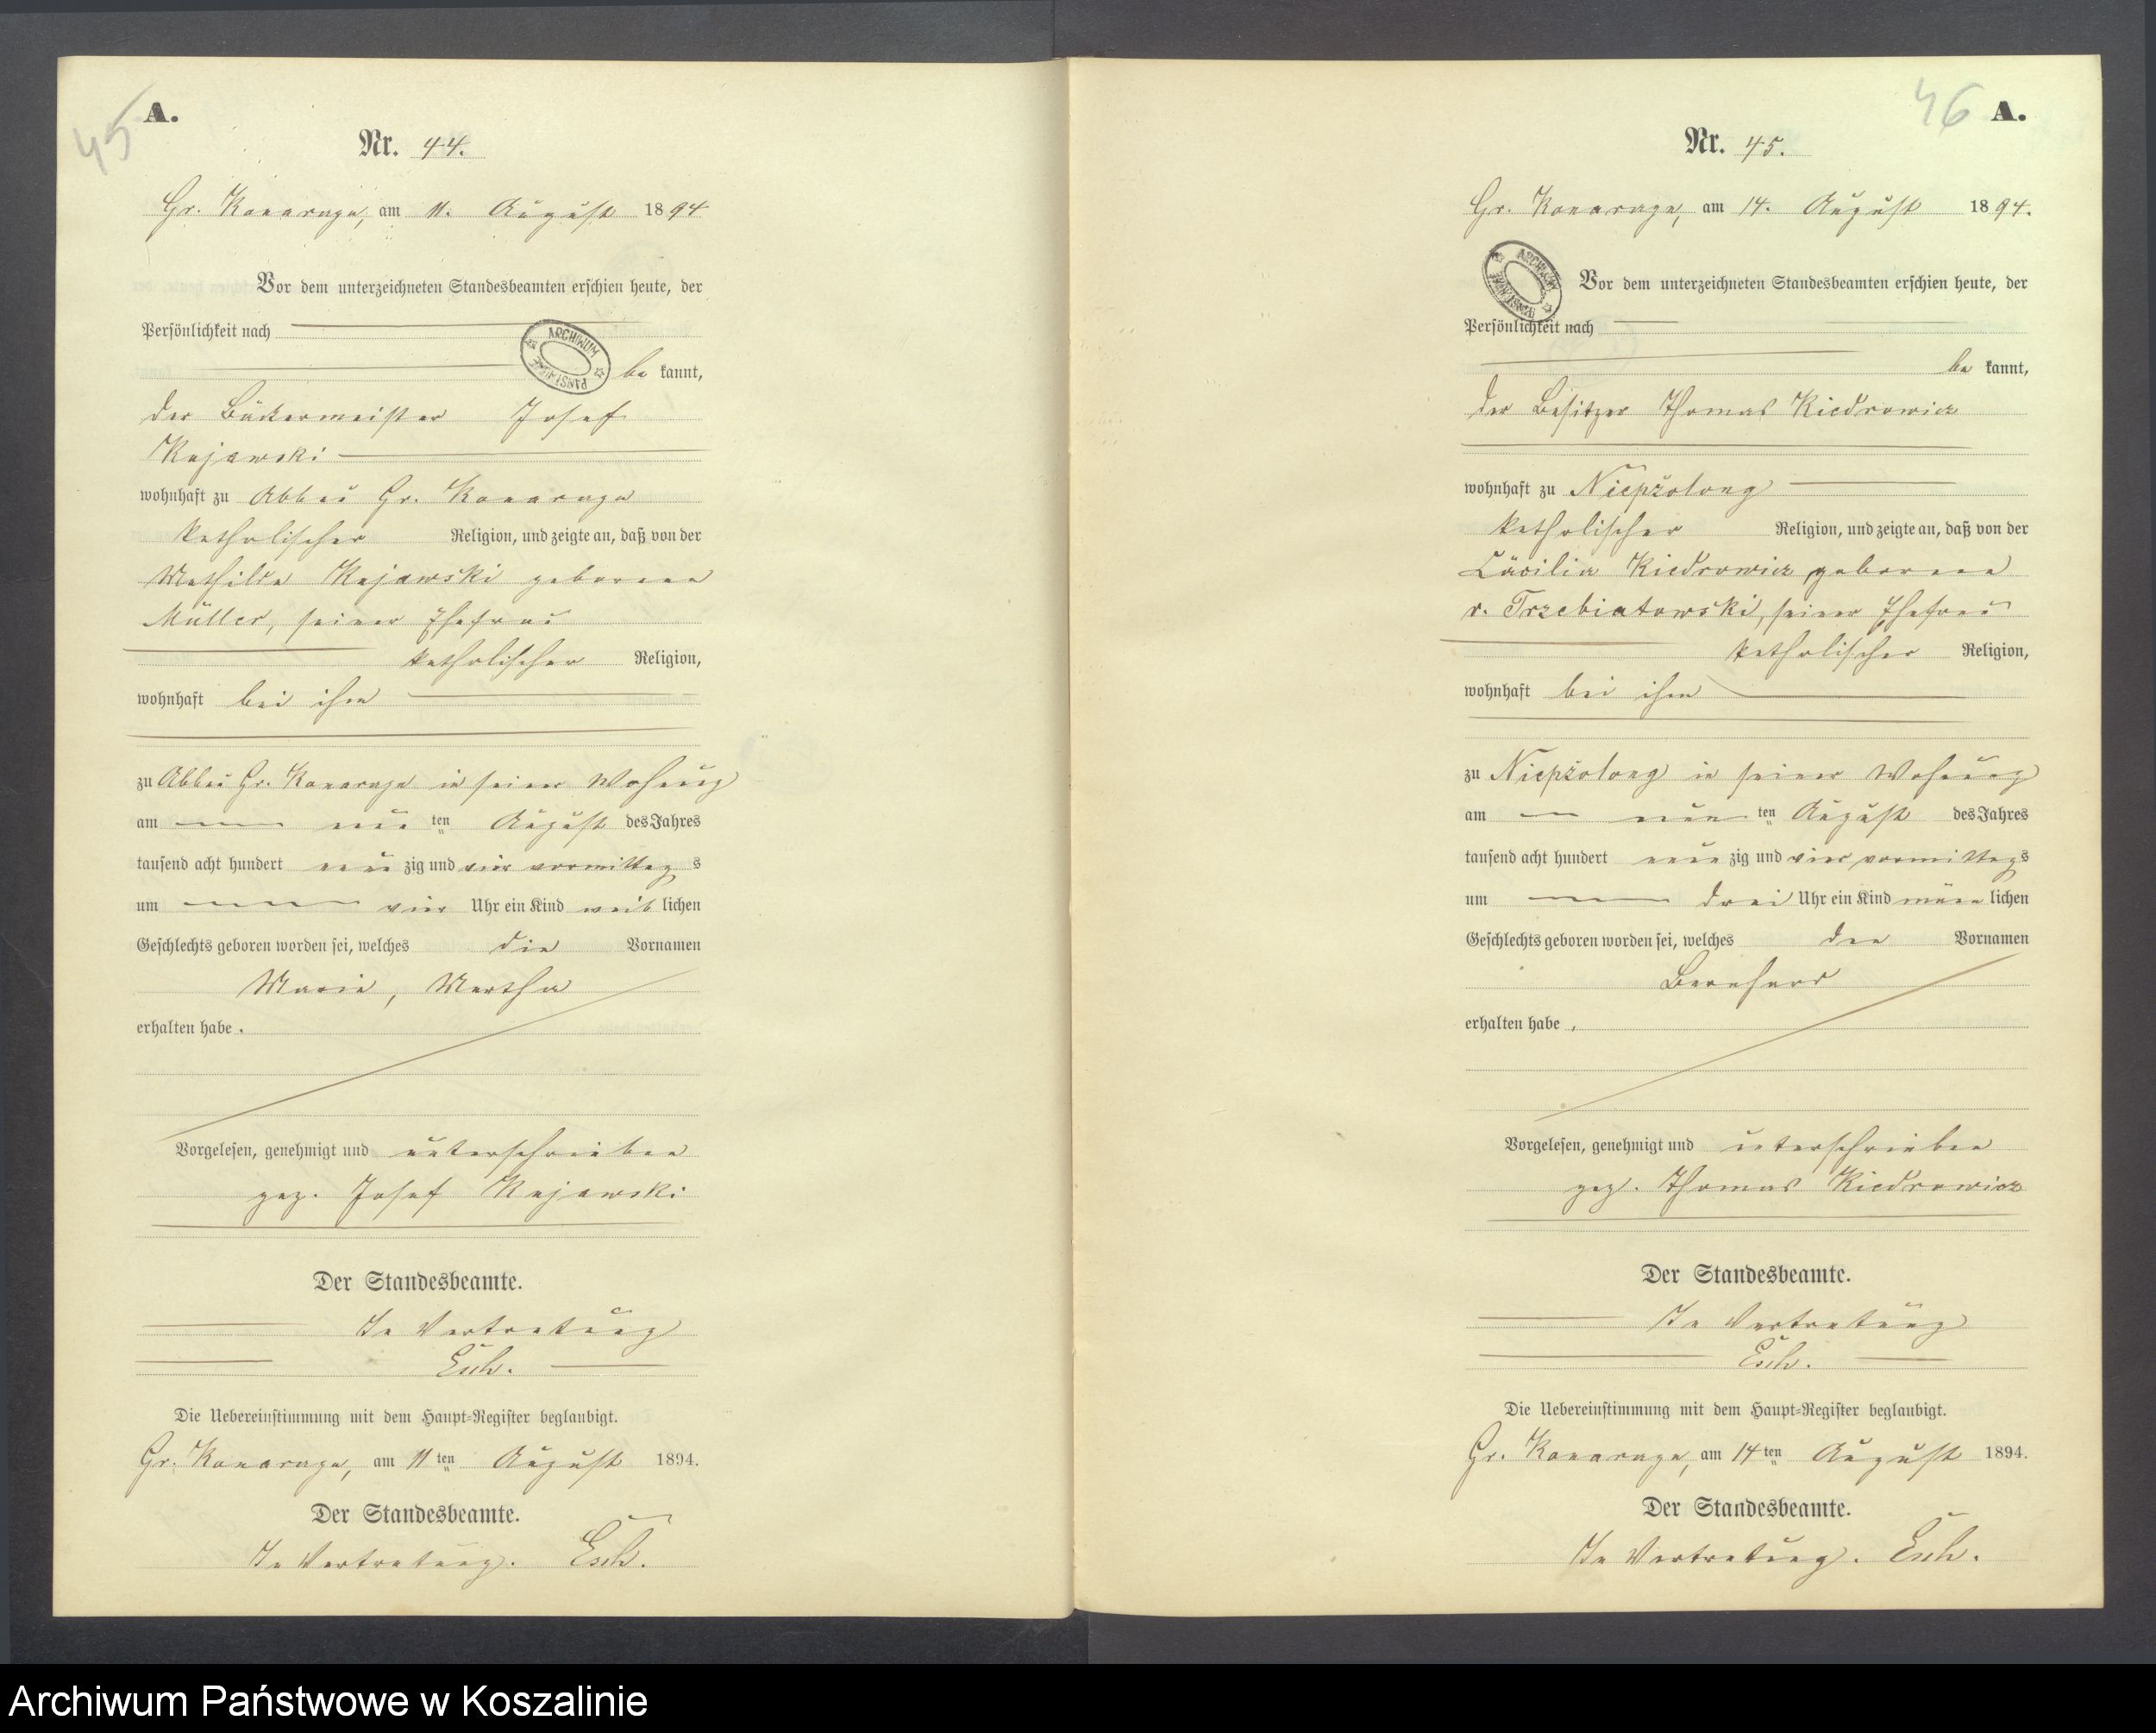 45
A.
Nr. 44.
Gr. Konarczyn, am 11. August 1894
Vor dem unterzeichneten Standesbeamten erschien heute, der
Persönlichkeit nach
ARCHIWUM PAŃSTWOWE
be kannt,
der Bäckermeister Josef
Kujawski
wohnhaft zu Abbau Gr.
katholischer Religion, und zeigte an, daß von der
Mathilde Kujawski geborenen
Müller, seiner Ehefrau
katholischer Religion,
wohnhaft bei ihm
zu Abbau Gr. in seiner Wohnung
am neun ten August des Jahres
tausend acht hundert neun zig und vier vormittag s
um vier Uhr ein Kind weib lichen
Geschlechts geboren worden sei, welches die Vornamen
Marie, Martha
erhalten habe.
Vorgelesen, genehmigt und unterschrieben
gez. Josef Kujawski
Der Standesbeamte.
In Vertretung
Die Uebereinstimmung mit dem Haupt-Register beglaubigt.
Gr. am 11 ten August 1894.
Der Standesbeamte.
In Vertretung.
46
A.
Nr. 45.
Gr. am 14. August 1894.
ARCHIWUM PAŃSTWOWE
Vor dem unterzeichneten Standesbeamten erschien heute, der
Persönlichkeit nach
be kannt,
der Besitzer Thomas Kiedrowicz
wohnhaft zu Niepszolong
katholischer Religion, und zeigte an, daß von der
Cäcilia Kiedrowicz geborenen
v. Trzebiatowski, seiner Ehefrau
katholischer Religion,
wohnhaft bei ihm
zu Niepszolong in seiner Wohnung
am neun ten August des Jahres
tausend acht hundert neun zig und vier vormittag s
um drei Uhr ein Kind männ lichen
Geschlechts geboren worden sei, welches den Vornamen
Bernhard
erhalten habe.
Vorgelesen, genehmigt und unterschrieben
gez. Thomas Kiedrowicz
Der Standesbeamte.
In Vertretung
Die Uebereinstimmung mit dem Haupt-Register beglaubigt.
Gr. am 14 ten August 1894.
Der Standesbeamte.
In Vertretung.
Archiwum Państwowe w Koszalinie